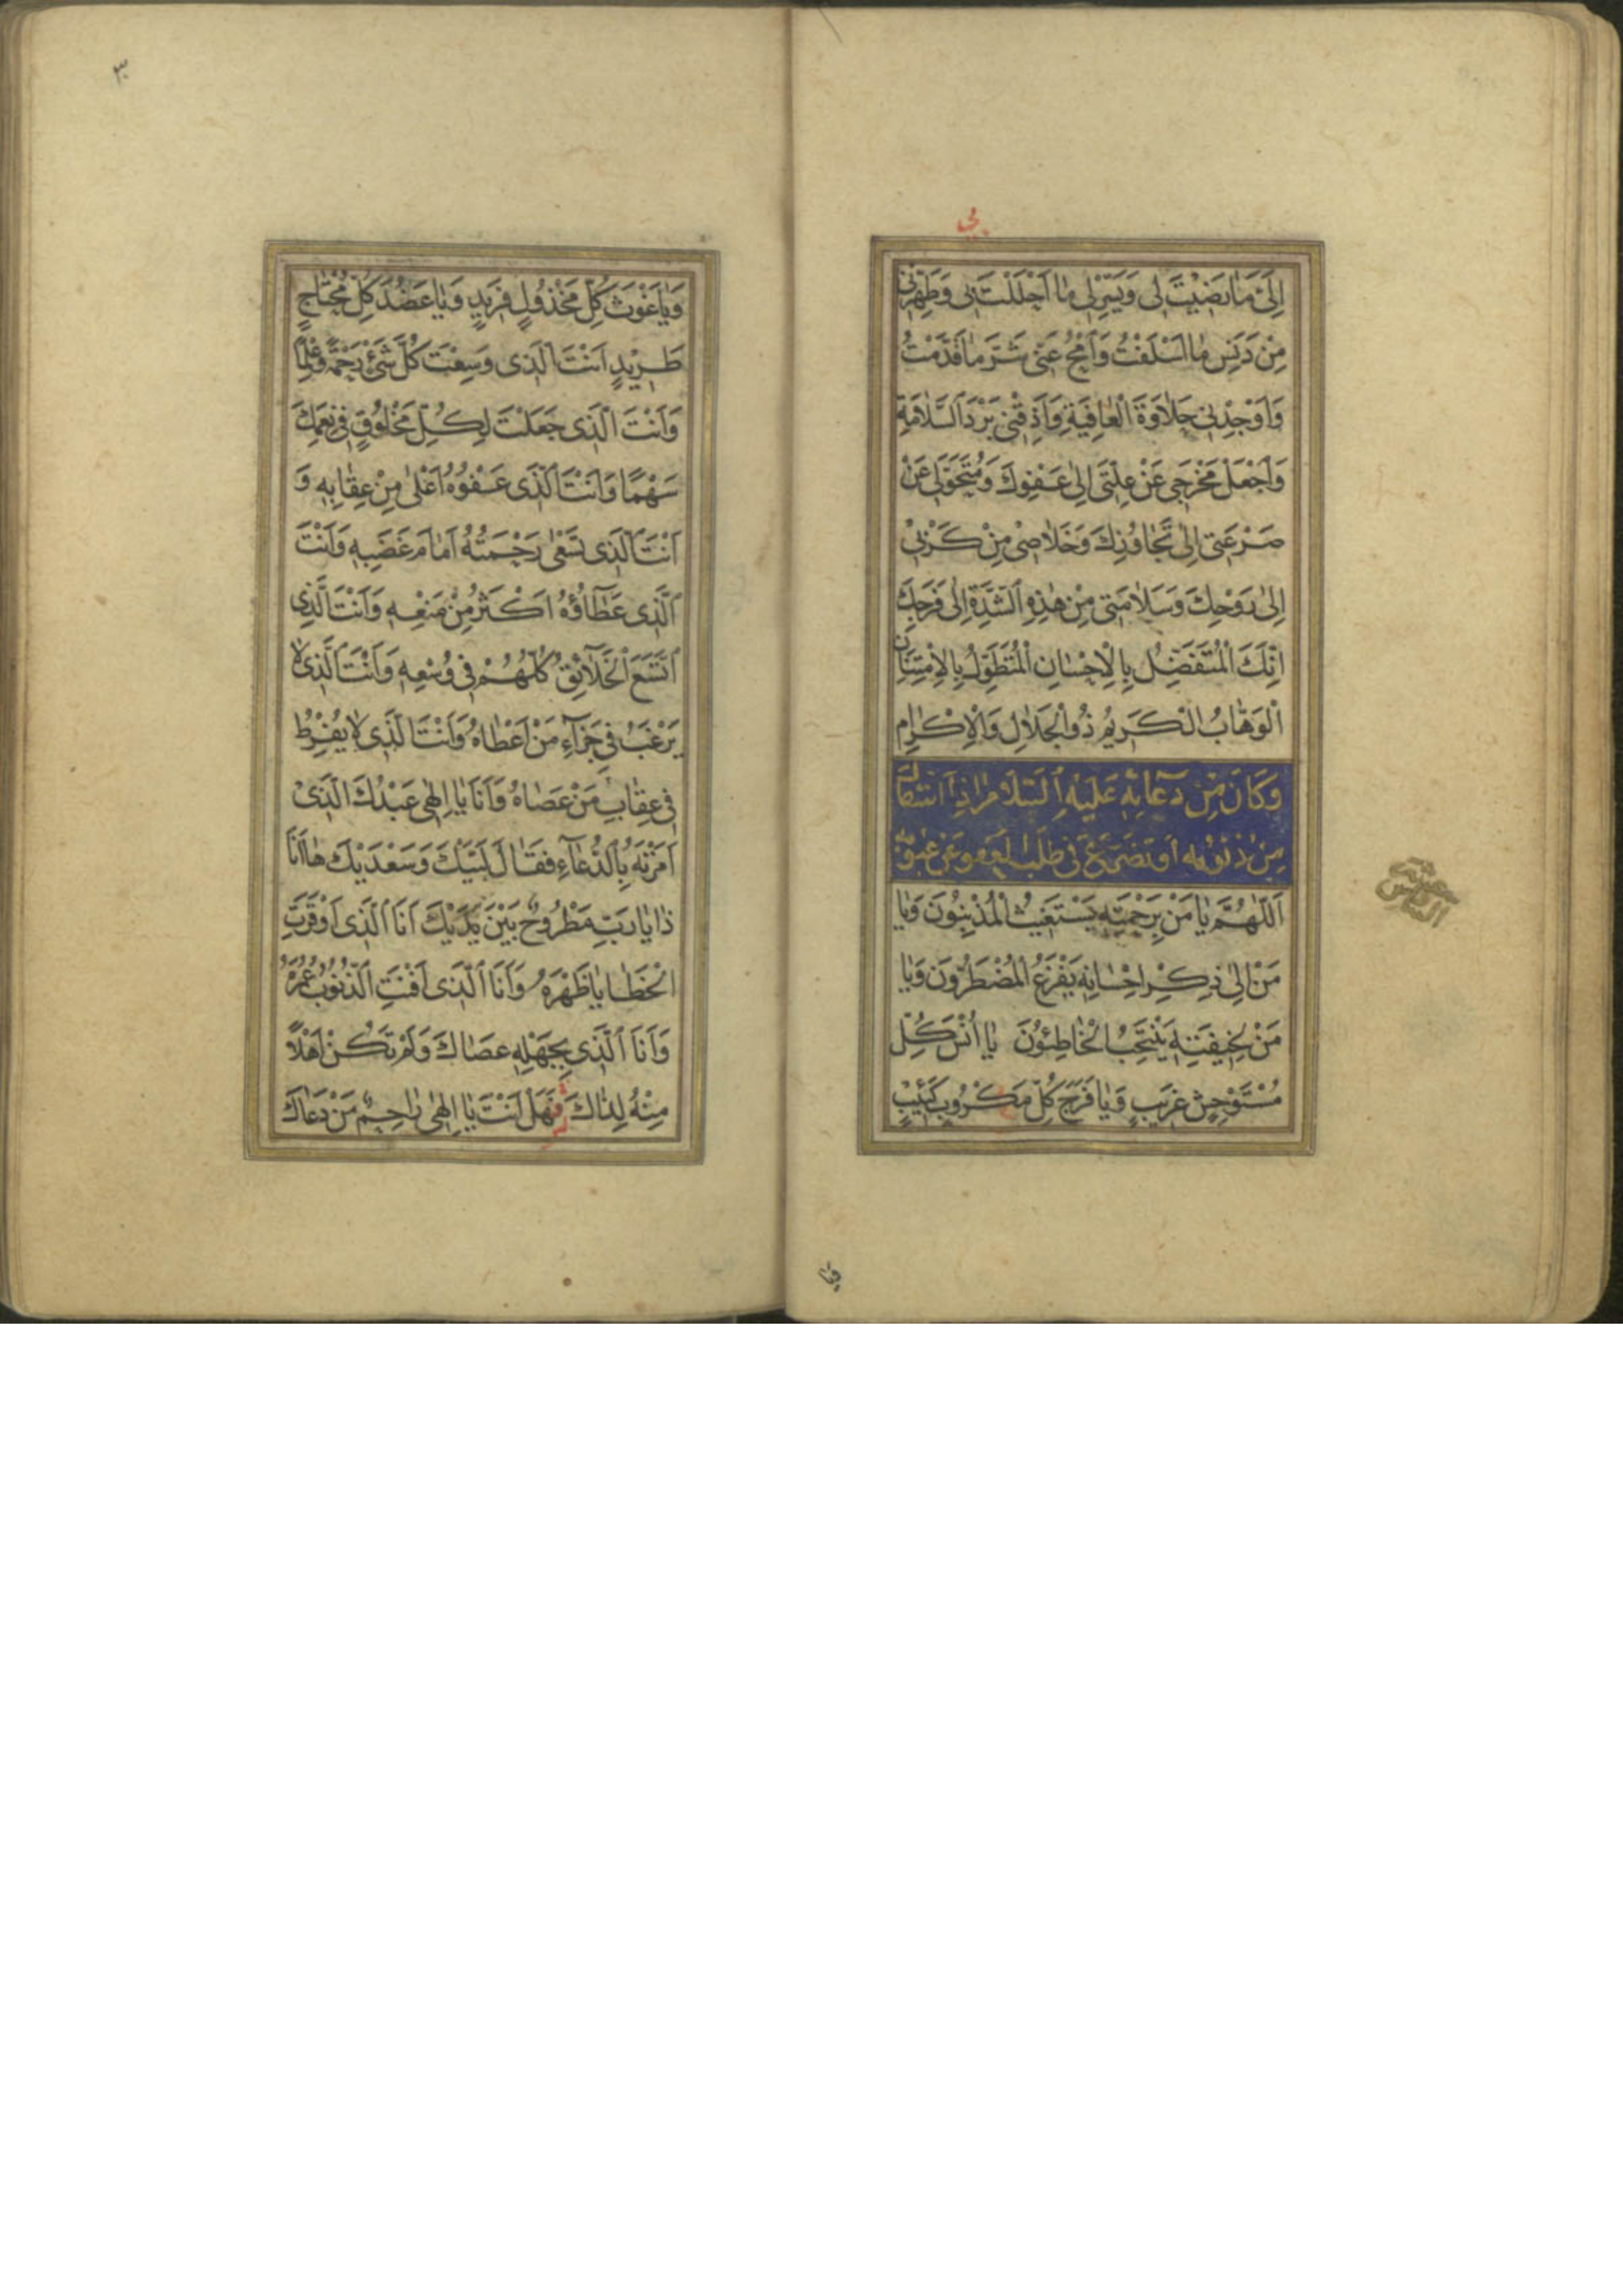 بي
اِلَىَّ مَا رَضِيْتَ لِى وَيَسِّرْ لِى مٰا اَحْلَلْتَ بِى وَطَهِّرْنى
مِنْ دَنَسِ مٰا اَسْلَفْتُ وَامْحُ عَنّى شَرَّ مٰا قَدَّمْتُ
وَاَوْجِدْنِى حَلاٰوَةَ الْعٰافِيَةِ وَاَذِقْنى بَرْدَ السَّلاٰمَةِ
وَاجْعَلْ مَخْرَجى عَنْ عِلَّتى اِلىٰ عَفْوِكَ وَمُتَحَوَّلى عَنْ
صَرْعَتى اِلىٰ تَجٰاوُزِكَ وَخَلاٰصى مِنْ كَرْبى
اِلىٰ رَوْحِكَ وَسَلاٰمَتى مِنْ هٰذِهِ الشِّدَّةِ اِلىٰ فَرَجِكَ
اِنَّكَ الْمُتَفَضِّلُ بِالْاِحْسٰانِ الْمُتَطَوِّلُ بِالْاِمْتِنٰانِ
الْوَهّٰابُ الْكَريمُ ذُو الْجَلاٰلِ وَالْاِكْرٰامِ
وَكَانَ مِنْ دُعَائِهِ عَلَيْهِ السَّلَامُ اِذَا اسْتَقَالَ
مِنْ ذُنُوبِهِ اَوْ تَضَرَّعَ فِى طَلَبِ الْعَفْوِ عَنْ عُيُوبِهِ
اَللّٰهُمَّ يٰا مَنْ بِرَحْمَتِهِ يَسْتَغيثُ الْمُذْنِبُونَ وَيٰا
مَنْ اِلىٰ ذِكْرِ اِحْسٰانِهِ يَفْزَعُ الْمُضْطَرُّونَ وَيٰا
مَنْ لِخيفَتِهِ يَنْتَحِبُ الْخٰاطِئُونَ يٰا اُنْسَ كُلِّ
مُسْتَوْحِشٍ غَريبٍ وَيٰا فَرَجَ كُلِّ مَكْرُوبٍ كَئيبٍ
وَيٰا غَوْثَ كُلِّ مَخْذُولٍ فَريدٍ وَيٰا عَضُدَ كُلِّ مُحْتٰاجٍ
طَريدٍ اَنْتَ الَّذى وَسِعْتَ كُلَّ شَىْءٍ رَحْمَةً وَعِلْمًا
وَاَنْتَ الَّذى جَعَلْتَ لِكُلِّ مَخْلُوقٍ فى نِعَمِكَ
سَهْمًا وَاَنْتَ الَّذى عَفْوُهُ اَعْلىٰ مِنْ عِقٰابِهِ وَ
اَنْتَ الَّذى تَسْعىٰ رَحْمَتُهُ اَمٰامَ غَضَبِهِ وَاَنْتَ
الَّذى عَطٰآؤُهُ اَكْثَرُ مِنْ مَنْعِهِ وَاَنْتَ الَّذى
اتَّسَعَ الْخَلاٰئِقُ كُلُّهُمْ فى وُسْعِهِ وَاَنْتَ الَّذى لاٰ
يَرْغَبُ فى جَزٰآءِ مَنْ اَعْطٰاهُ وَاَنْتَ الَّذى لاٰ يُفْرِطُ
فى عِقٰابِ مَنْ عَصٰاهُ وَاَنَا يٰا اِلٰهى عَبْدُكَ الَّذى
اَمَرْتَهُ بِالدُّعٰآءِ فَقٰالَ لَبَّيْكَ وَسَعْدَيْكَ هٰا اَنَا
ذٰا يٰا رَبِّ مَطْرُوحٌ بَيْنَ يَدَيْكَ اَنَا الَّذى اَوْقَرَتِ
الْخَطٰايٰا ظَهْرَهُ وَاَنَا الَّذى اَفْنَتِ الذُّنُوبُ عُمْرَهُ
وَاَنَا الَّذى بِجَهْلِهِ عَصٰاكَ وَلَمْ تَكُنْ اَهْلًا
مِنْهُ لِذٰاكَ فَهَلْ اَنْتَ يٰا اِلٰهى رٰاحِمٌ مَنْ دَعٰاكَ